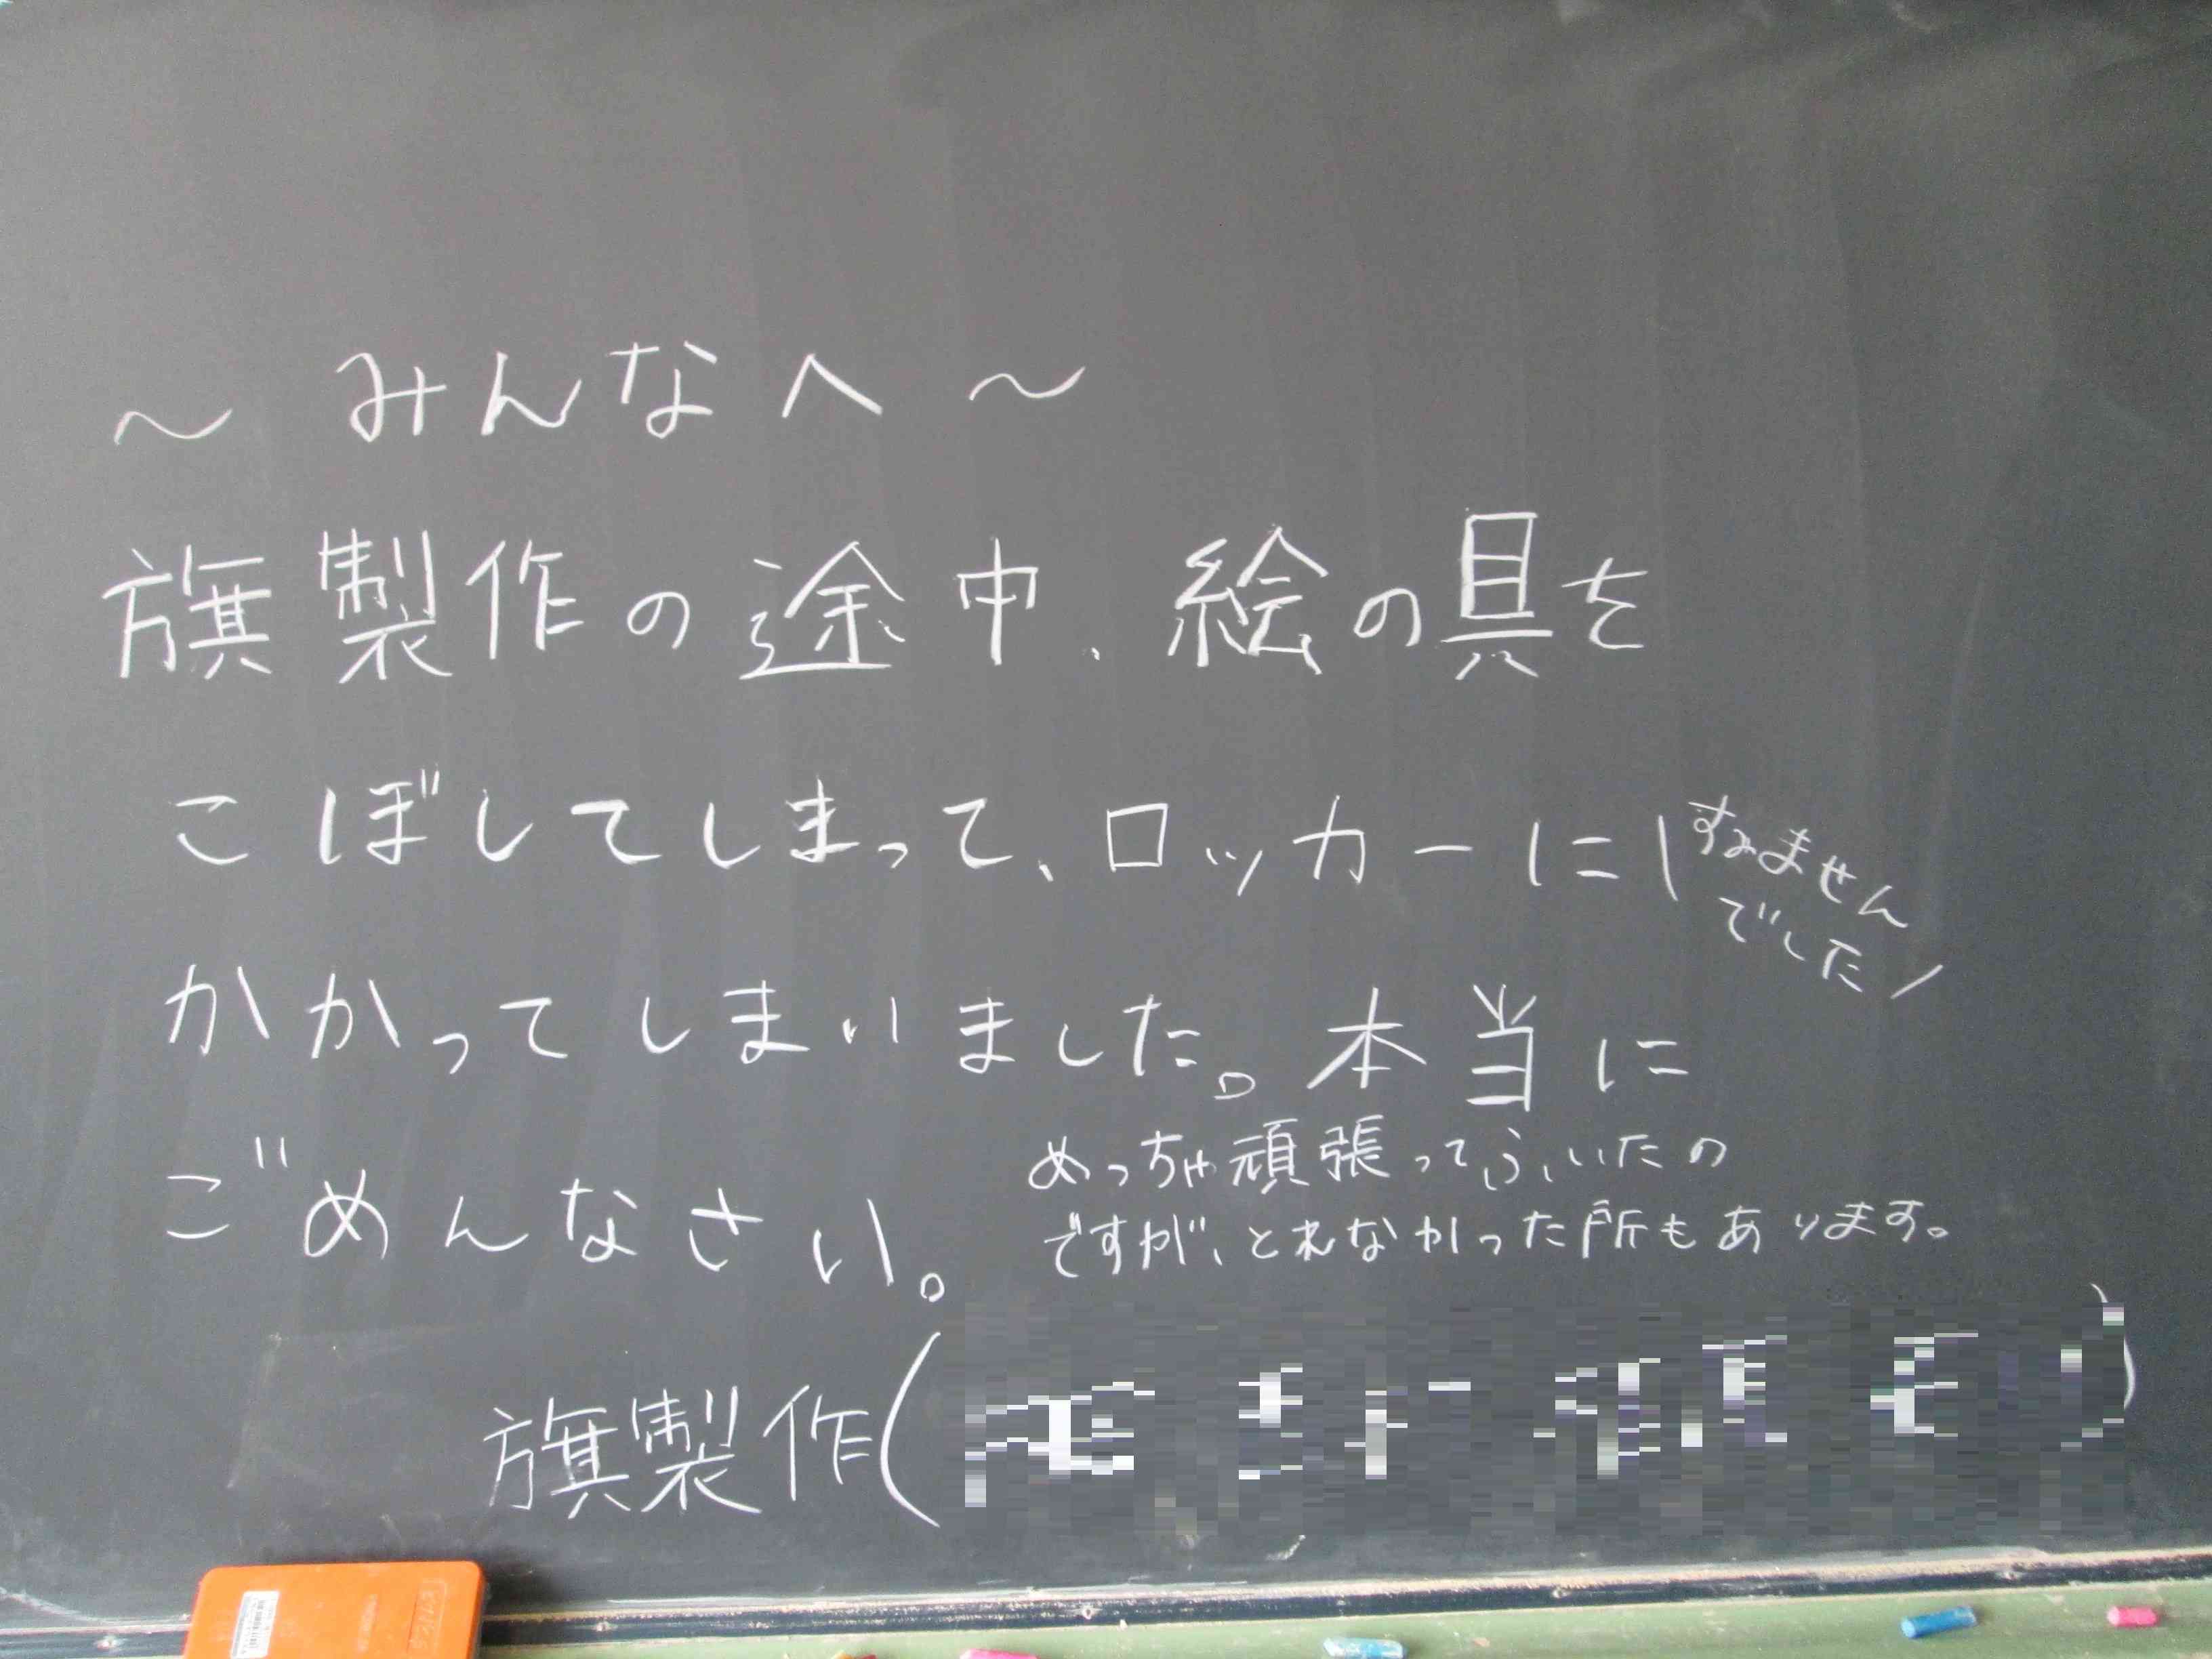 ～ みんなへ ～
旗製作の途中、絵の具を
こぼしてしまって、ロッカーに
\すみません
でした/
かかってしまいました。本当に
ごめんなさい。
めっちゃ頑張ってふいたの
ですが、とれなかった所もあります。
旗製作(